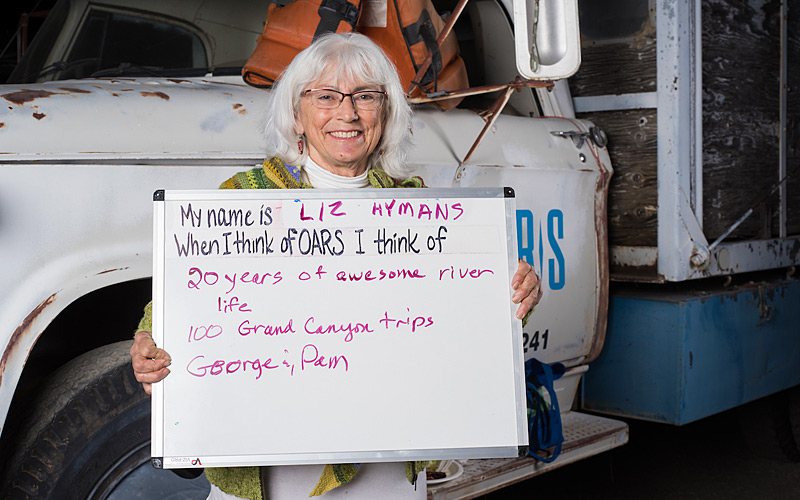 My name is LIZ HYMANS
When I think of OARS I think of
20 years of awesome river
life
100 Grand Canyon trips
George & Pam
RS
241